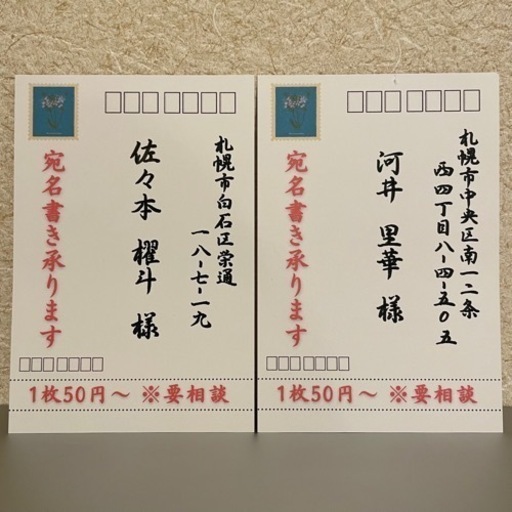 札幌市白石区栄通
一八-七-一九
佐々木 櫂斗 様
宛名書き承ります
1枚50円〜 ※要相談
札幌市中央区南一二条
西四丁目八-四-五0五
河井 里華 様
宛名書き承ります
1枚50円〜 ※要相談